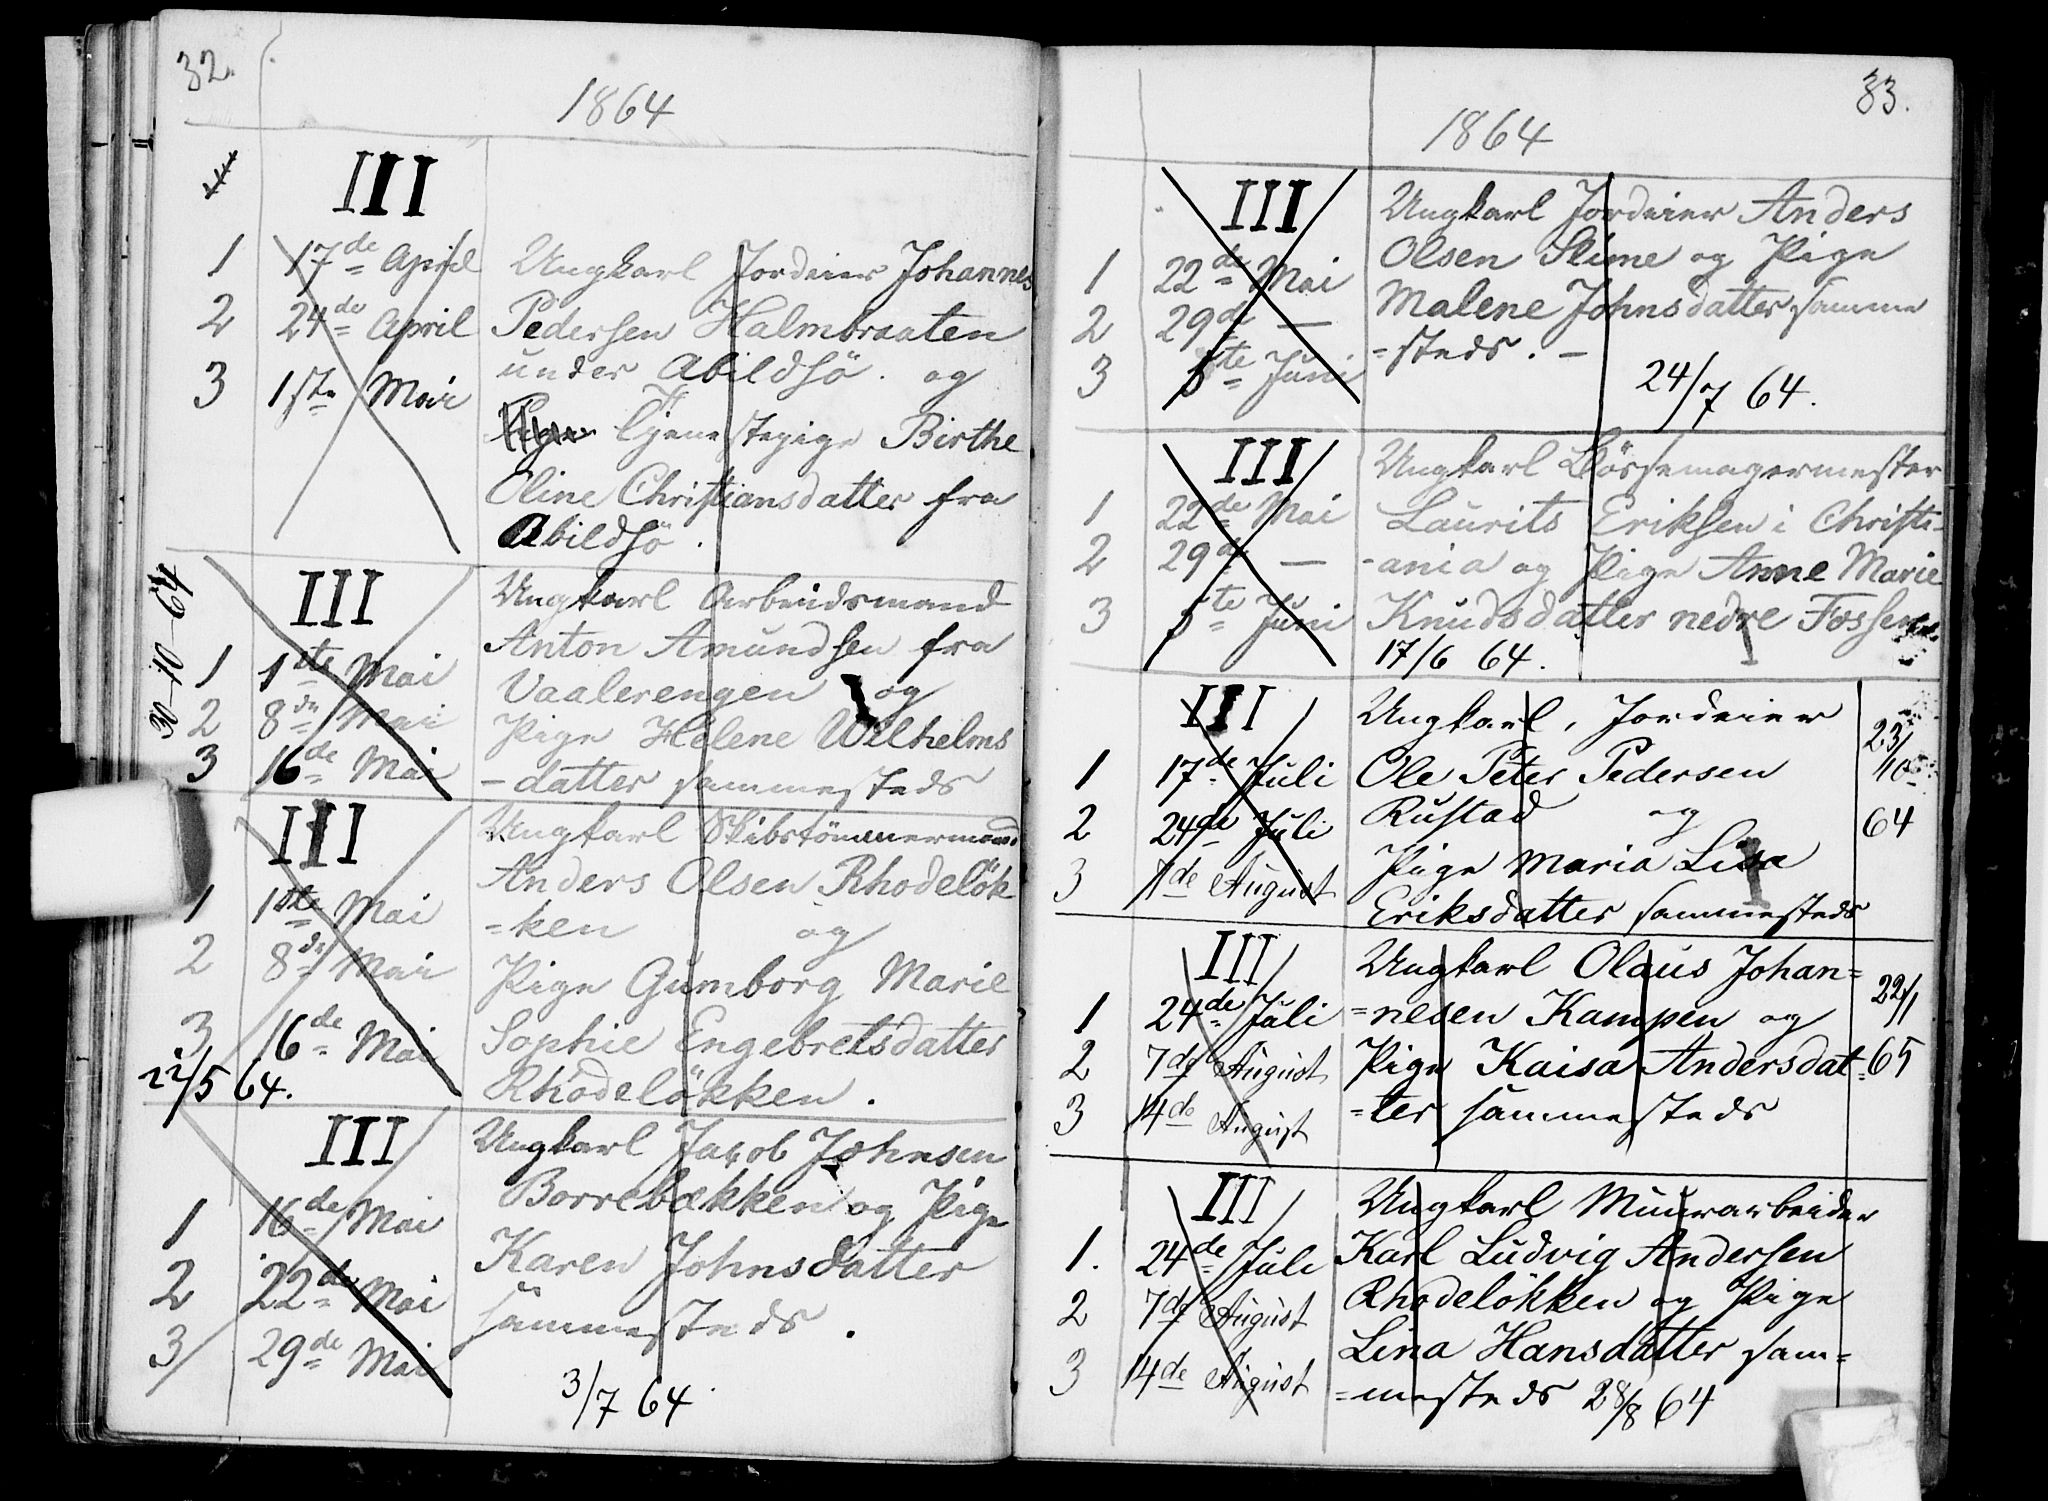 32.
1864
III
1 17de April Ungkarl Jordeier Johannes
2 24de April Pedersen Halmbraaten
3 1ste Mai under Abildsö. og
Pige Tjenestepige Birthe
Oline Christiansdatter fra
Abildsö.
30-10-64
III
Ungkarl Arbeidsmand
Anton Amundsen fra
1 1ste Mai Vaalerengen og
2 8de Mai Pige Helene Wilhelms
3 16de Mai -datter sammesteds
III
Ungkarl Skibstömmermand
Anders Olsen Rhodelök
1 1ste Mai =ken og
2 8de Mai Pige Gunborg Marie
3 16de Mai Sophie Engebretsdatter
22/5 64. Rhodelökken.
III
Ungkarl Jacob Johnsen
1 16de Mai Borrebækken og Pige
2 22de Mai Karen Johnsdatter
3 29de Mai sammesteds.
3/7 64.
33.
1864
III
Ungkarl Jordeier Anders
1 22de Mai Olsen Slime og Pige
2 29de — Malene Johnsdatter samme
3 5te Juni =steds. —
24/7 64.
III
Ungkarl Bössemagermester
1 22de Mai Laurits Eriksen i Christi-
2 29de — -ania og Pige Anne Marie
3 5te Juni Knudsdatter nedre Fossen
17/6 64.
III
Ungkarl, Jordeier
1 17de Juli Ole Peter Pedersen
2 24de Juli Rustad og
3 7de August Pige Maria Lisa
Eriksdatter sammesteds
23/10
64
III
Ungkarl Olaus Johan=
1 24de Juli =nesen Kampen og
2 7de August Pige Kaisa Andersdat=
3 14de August =ter sammesteds
22/1
65
III
Ungkarl Muurarbeider
1. 24de Juli Karl Ludvig Andersen
2 7de August Rhodelökken og Pige
3 14de August Lina Hansdatter sam=
=mesteds 28/8 64